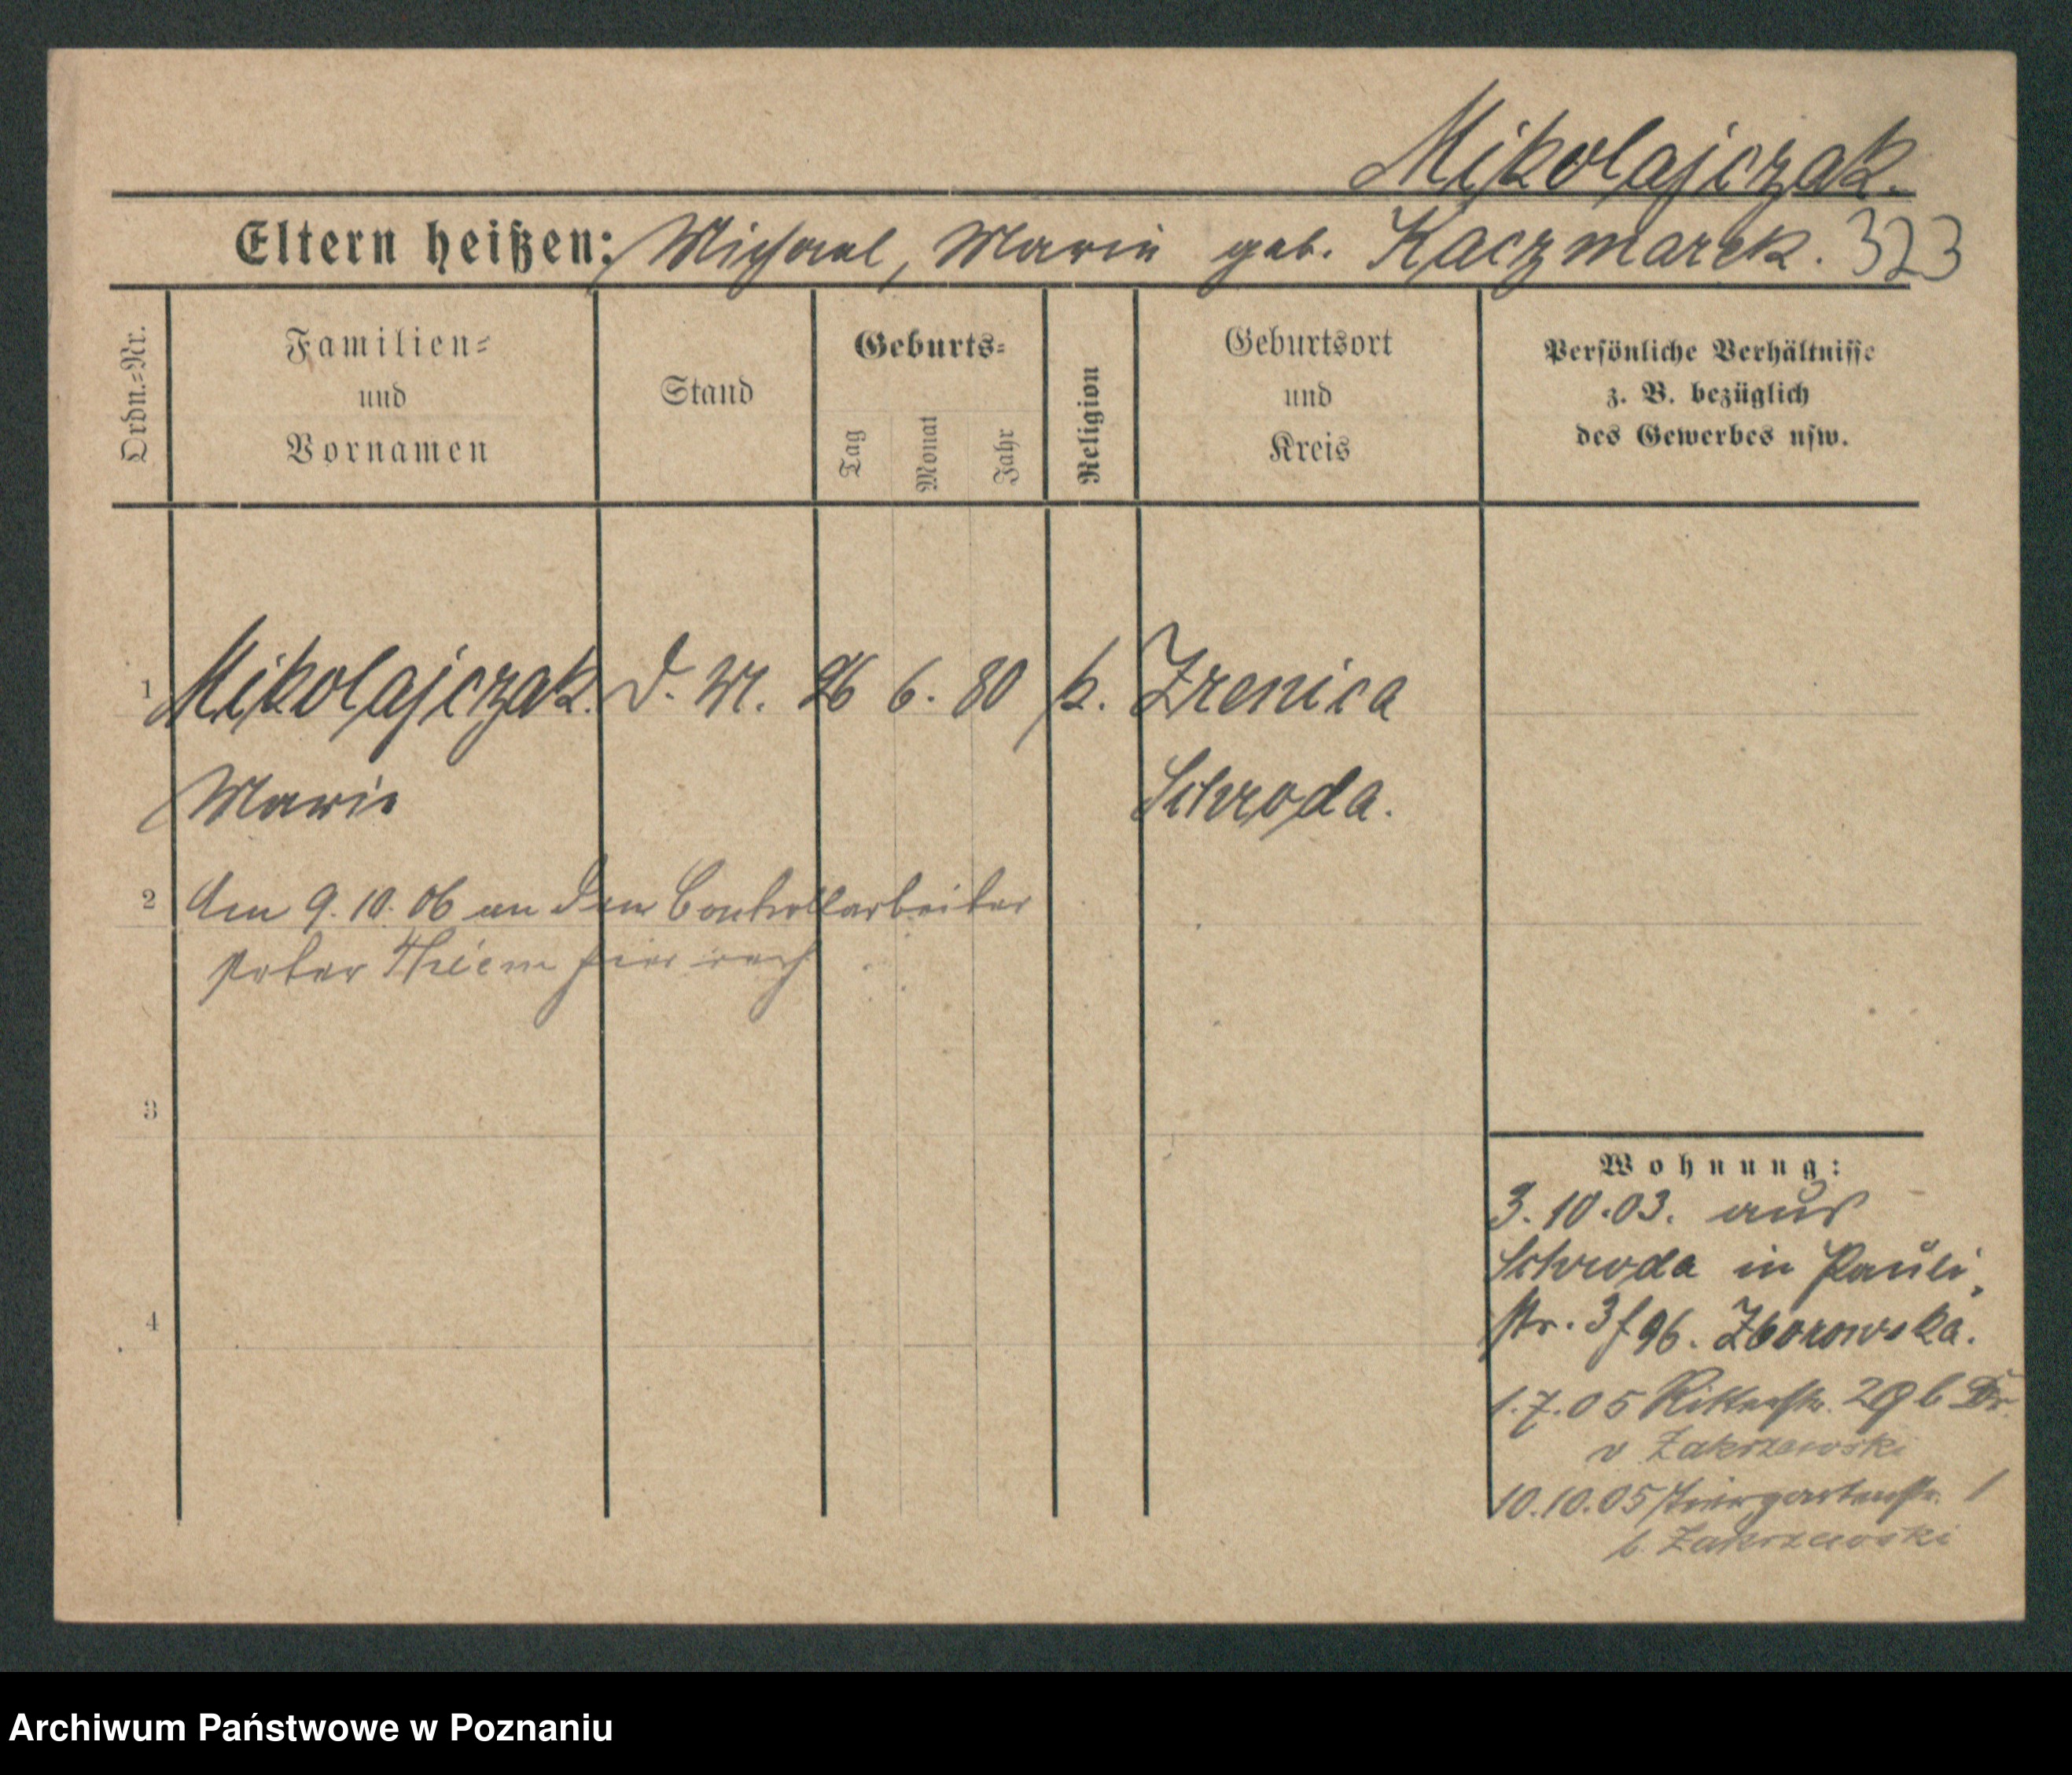 Mikolajczak.
Eltern heißen: Michael, Marie geb. Kaczmarek. 323
Ordn.=Nr.
Familien=
und
Vornamen
Stand
Geburts=
Tag
Monat
Jahr
Religion
Geburtsort
und
Kreis
Persönliche Verhältnisse
z. B. bezüglich
des Gewerbes usw.
1 Mikolajczak. D. M. 26 6. 80 k. Zrenica
Marie Schroda.
2 Am 9.10.06 an den Controllarbeiter
Peter Thiem hier verh
3
4
Wohnung:
3.10.03. aus
Schroda in Pauli
str. 3 f 96. Zborowska.
1.7.05 Ritterstr. 29 b Dr.
v Zakrzewski
10.10.05 Tiergartenstr. 1
b. Zakrzewski
Archiwum Państwowe w Poznaniu